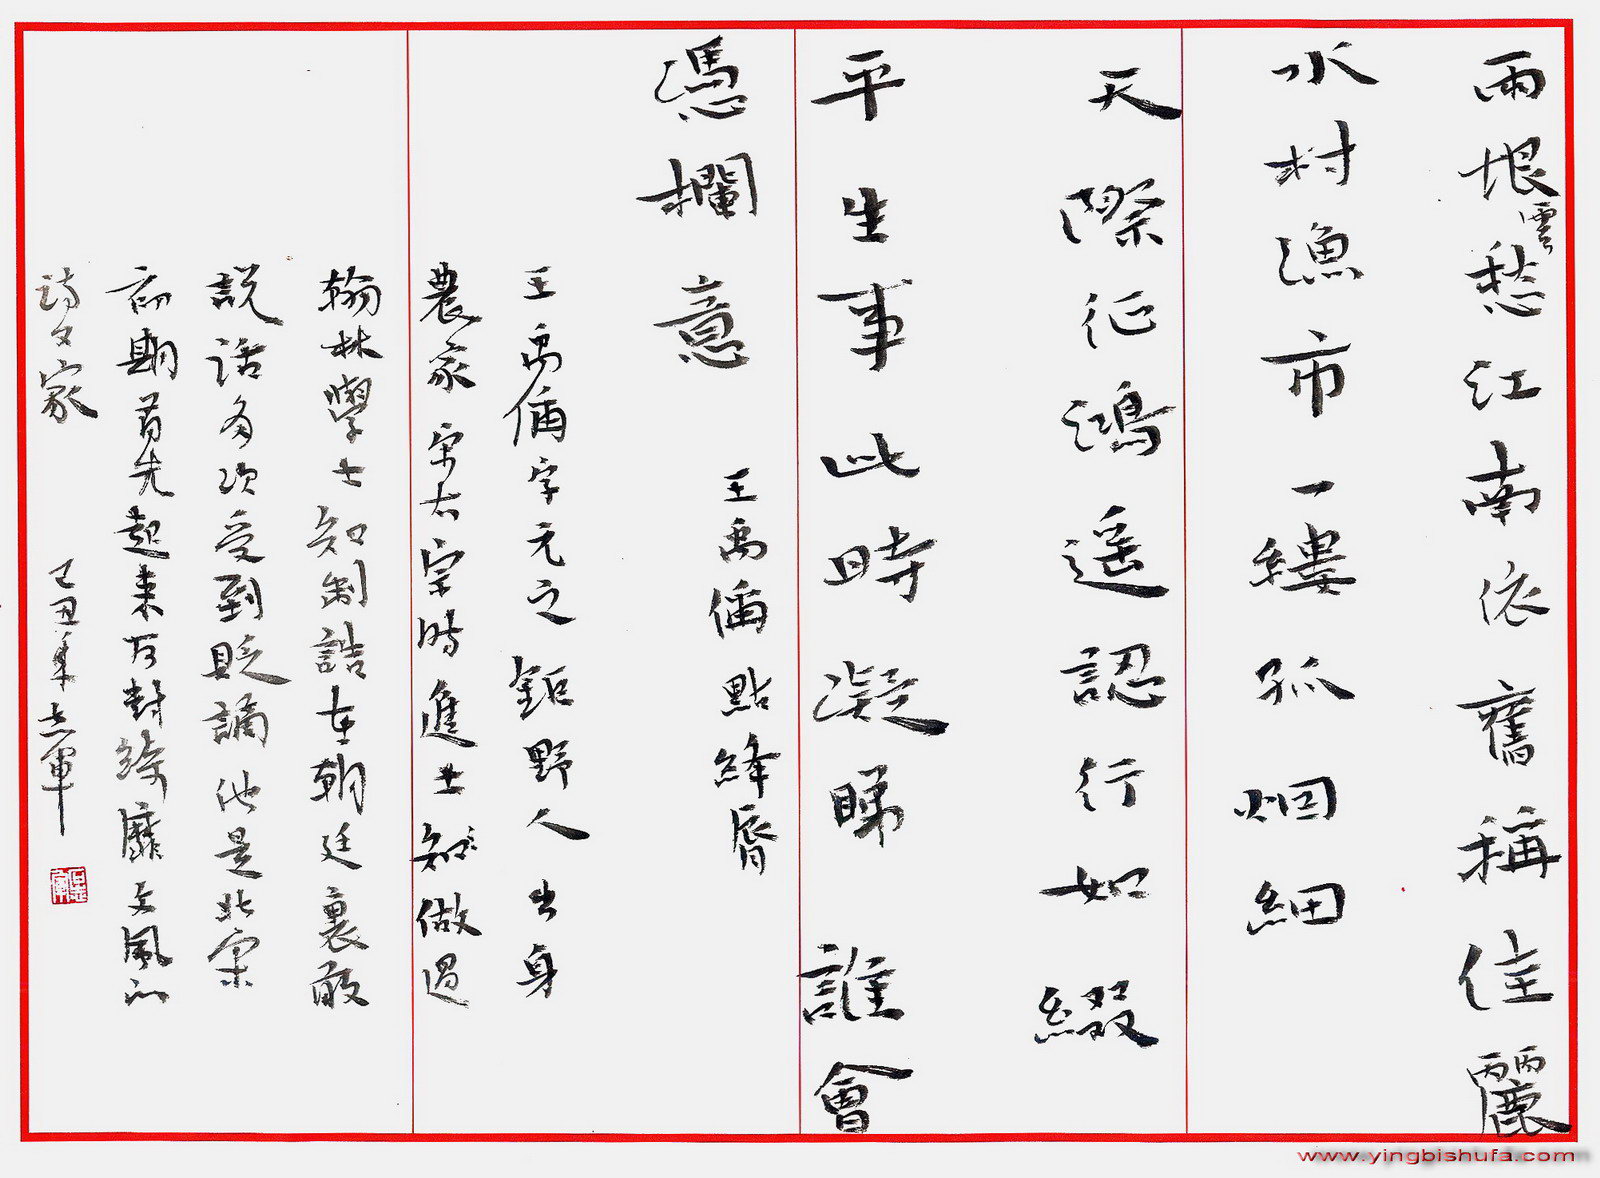 雨恨雲愁江南依舊稱佳麗
水村漁市一縷孤烟細
天際征鴻遥認行如綴
平生事此時凝睇誰會
憑欄意
王禹偁點絳唇
王禹偁字元之鉅野人出身
農家宋太宗時進士做過
翰林學士知制誥在朝廷裏敢
説話多次受到貶謫他是北宋
初期首先起來反對綺靡文風的
詩文家
己丑年志軍
www.yingbishufa.com